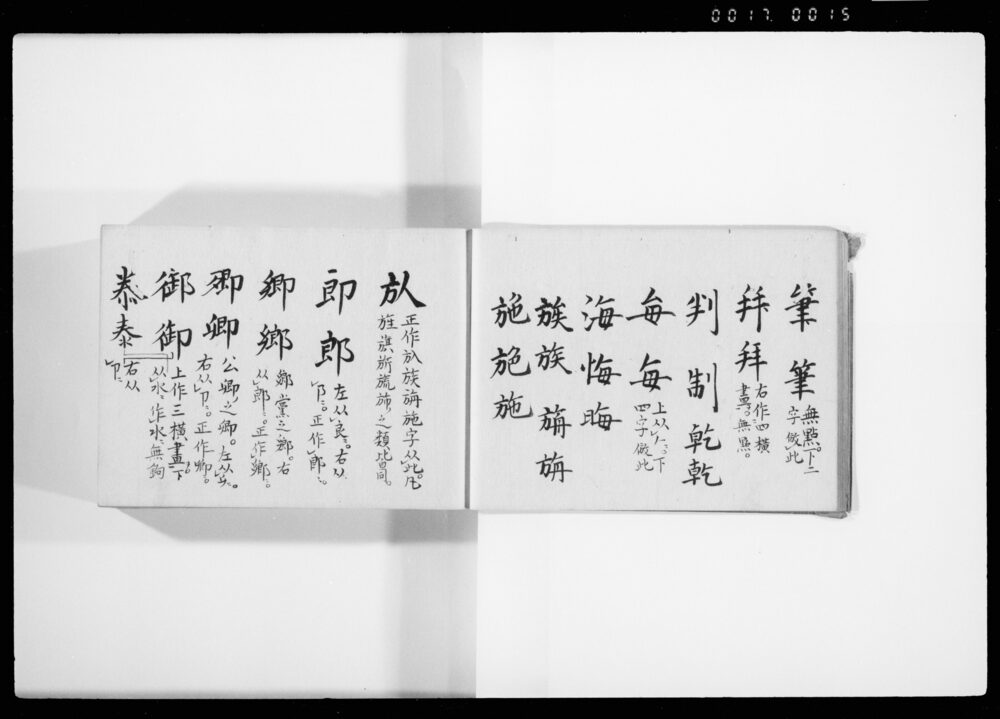 0017 0015
筆 筆 無點。下二
字倣此
拜 拜 右作四橫
畫。無點。
判 制 乾 乾
每 每 上从𠂉。下
四字倣此
海 悔 晦
族 族 旃 旃
施 施 施
㫃 正作㫃族旃施字从此。凡
旌旗旂旒旆之類此同。
郎 郎 左从良。右从
卩。正作郎。
鄉 鄉 鄉黨之鄉。右
从郎。正作鄉。
卿 卿 公卿之卿。左从
右从卩。正作卿。
御 御 右从
卩
恭 泰 上作三橫畫。下
从水。作氺無鉤